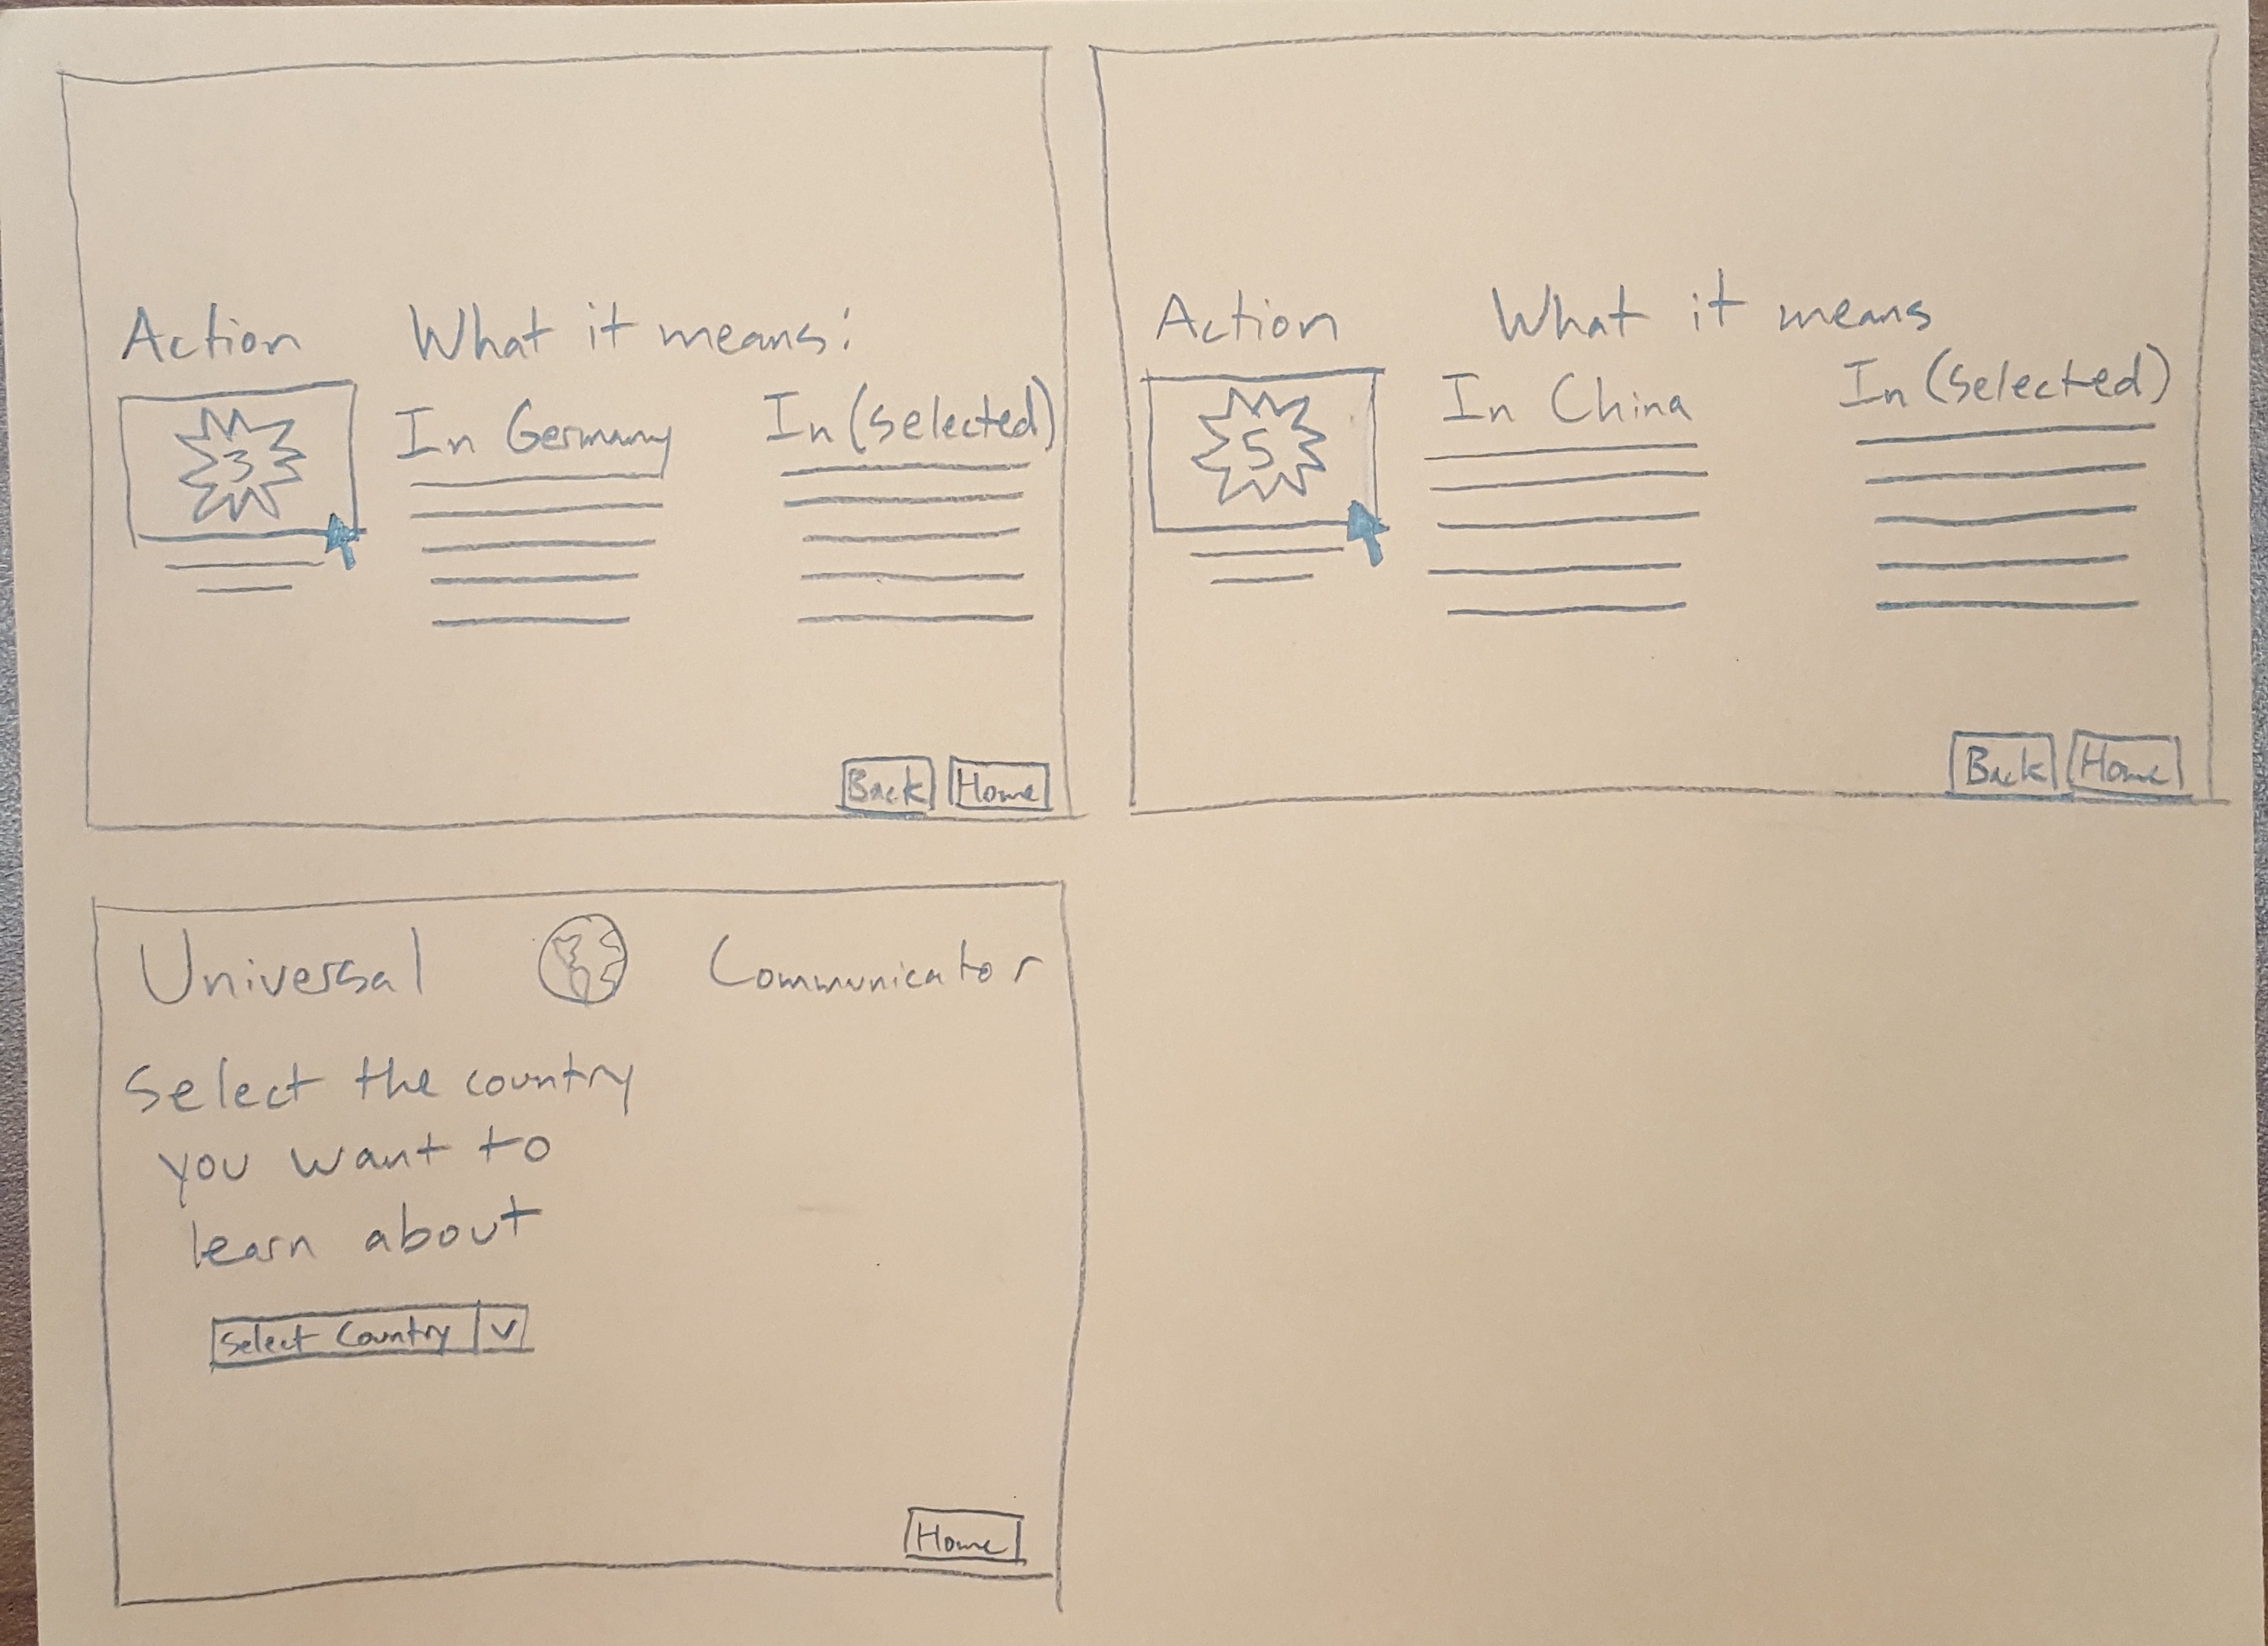 Action What it means:
3 In Germany In (selected)
Back Home
Action What it means
5 In China In (selected)
Back Home
Universal Communicator
Select the country
you want to
learn about
Select Country V
Home